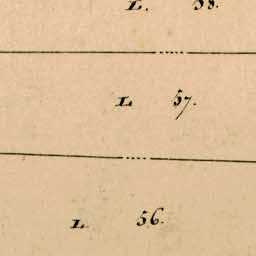 L. 58.
L 57.
L 56.